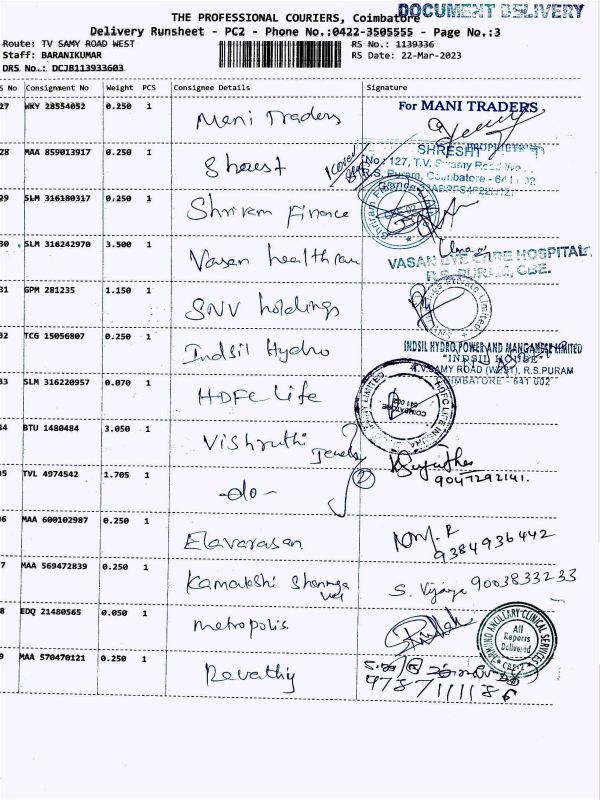 DOCUMENT DELIVERY
THE PROFESSIONAL COURIERS, Coimbatore
Delivery Runsheet - PC2 - Phone No.:0422-3505555 - Page No.:3
Route: TV SAMY ROAD WEST
RS No.: 1139336
Staff: BARANIKUMAR
RS Date: 22-Mar-2023
DRS No.: DCJB113933603
S No Consignment No Weight PCS Consignee Details Signature
27 WKY 28554052 0.250 1 Mani Traders
For MANI TRADERS,
PROPRIETRIX
28 MAA 859013917 0.250 1 Sharest
SHRESHT
No: 127, T.V. Swamy Road
R.S. Puram, Coimbatore - 641 002
29 SLM 316180317 0.250 1 Shriram Finance
30 SLM 316242970 3.500 1 Vasan healthcare
VASAN EYE CARE HOSPITAL,
R.S. PURAM, CBE.
31 GPM 281235 1.150 1 SNV holdings
32 TCG 15056807 0.250 1 Indsil Hydro
INDSIL HYDRO POWER AND MANGANESE LIMITED
"INDSIL HOUSE"
T.V.SAMY ROAD (WEST), R.S.PURAM
COIMBATORE - 641 002
33 SLM 316220957 0.070 1 HDFC Life
HDFC LIFE INSURA
COIMBATORE
641 002
34 BTU 1480484 3.050 1 Vishruthi
35 TVL 4974542 1.705 1 -do-
2
9047292141.
36 MAA 600102987 0.250 1 Elavarasan
9384936442
37 MAA 569472839 0.250 1 Kamatchi Shanmuga
Vel
S. Vijaya 9003833233
38 EDQ 21480565 0.050 1 metropolis
ANCILLARY CLINICAL SERVICES
All
Reports
Delivered
CBE-2
39 MAA 570470121 0.250 1 Revathy